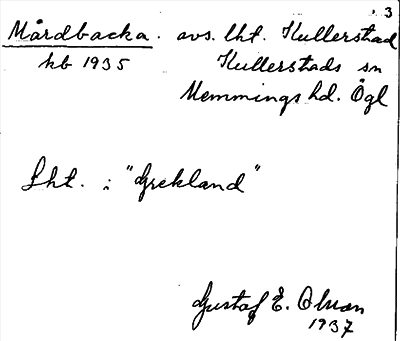 3
Mårdbacka. avs. lht. Kullerstad
kb 1935 Kullerstads sn
Memmings hd. Ögl
Lht. i "Grekland"
Gustaf E. Olson
1937